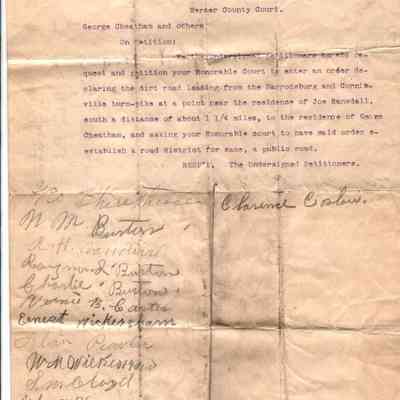 Mercer County Court.
George Cheatham and others
On Petition:
We the undersigned petitioners to re-
quest and petition your Honorable Court to enter an order de-
claring the dirt road leading from the Harrodsburg and Cornis-
ville turn-pike at a point near the residence of Joe Ransdall,
south a distance of about 1 1/4 miles, to the residence of Georg
Cheatham, and asking your Honorable court to have said order e-
establish a road district for same, a public road.
RESP'Y, The Undersigned Petitioners.
Geo Cheatham Clarence Coslow.
W M Burton
Raymond Burton
Charlie Burton
B. Carter
Ernest Wickersham
W. M. Wilkerson